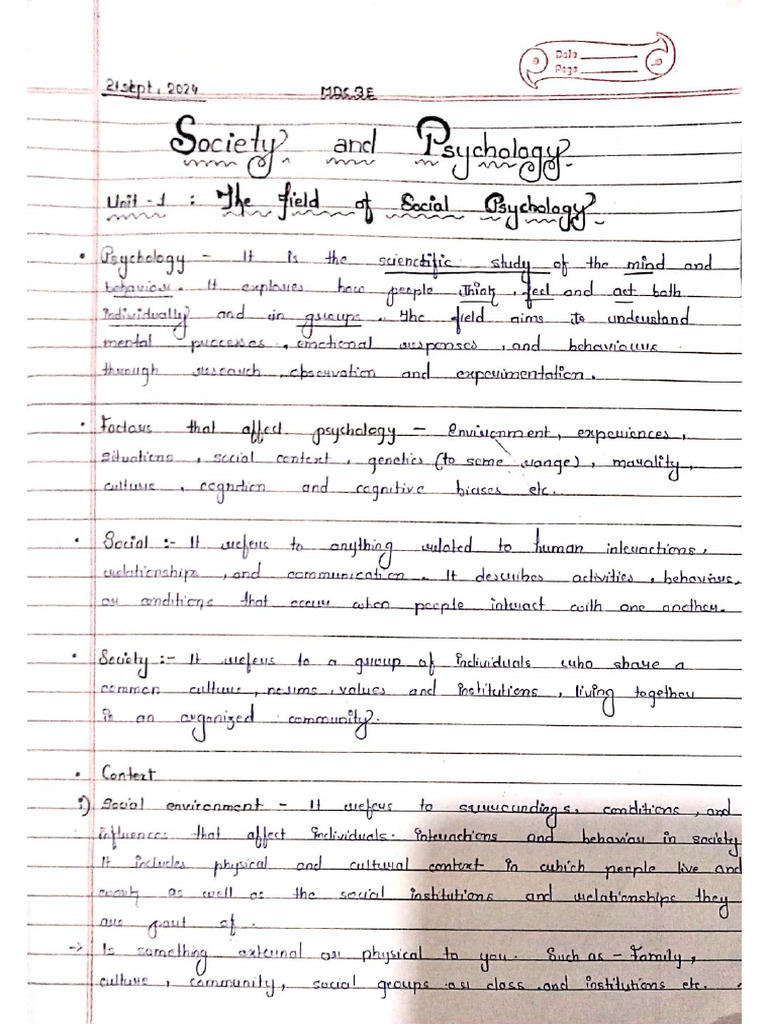 Date
Page
21 sept, 2024 MDC 3E
Society and Psychology
Unit -1 : The field of Social Psychology
• Psychology - It is the scienctific study of the mind and
behaviour. It explores how people think, feel and act both
individually and in groups. The field aims to understand
mental processes, emotional responses, and behaviours
through research, observation and experimentation.
• Factors that affect psychology - Environment, experiences,
situations, social context, genetics (to some range), morality,
culture, cognition and cognitive biases etc.
• Social :- It refers to anything related to human interactions,
relationships, and communication. It describes activities, behaviours
or conditions that occur when people interact with one another.
• Society :- It refers to a group of individuals who share a
common culture, norms, values and institutions, living together
in an organized community.
• Context
i) Social environment - It refers to surroundings, conditions, and
influences that affect individuals. interactions and behaviour in society
It includes physical and cultural context in which people live and
as well as the social institutions and relationships they
are part of.
→ Is something external or physical to you. Such as - Family,
culture, community, social groups or class and institutions etc.